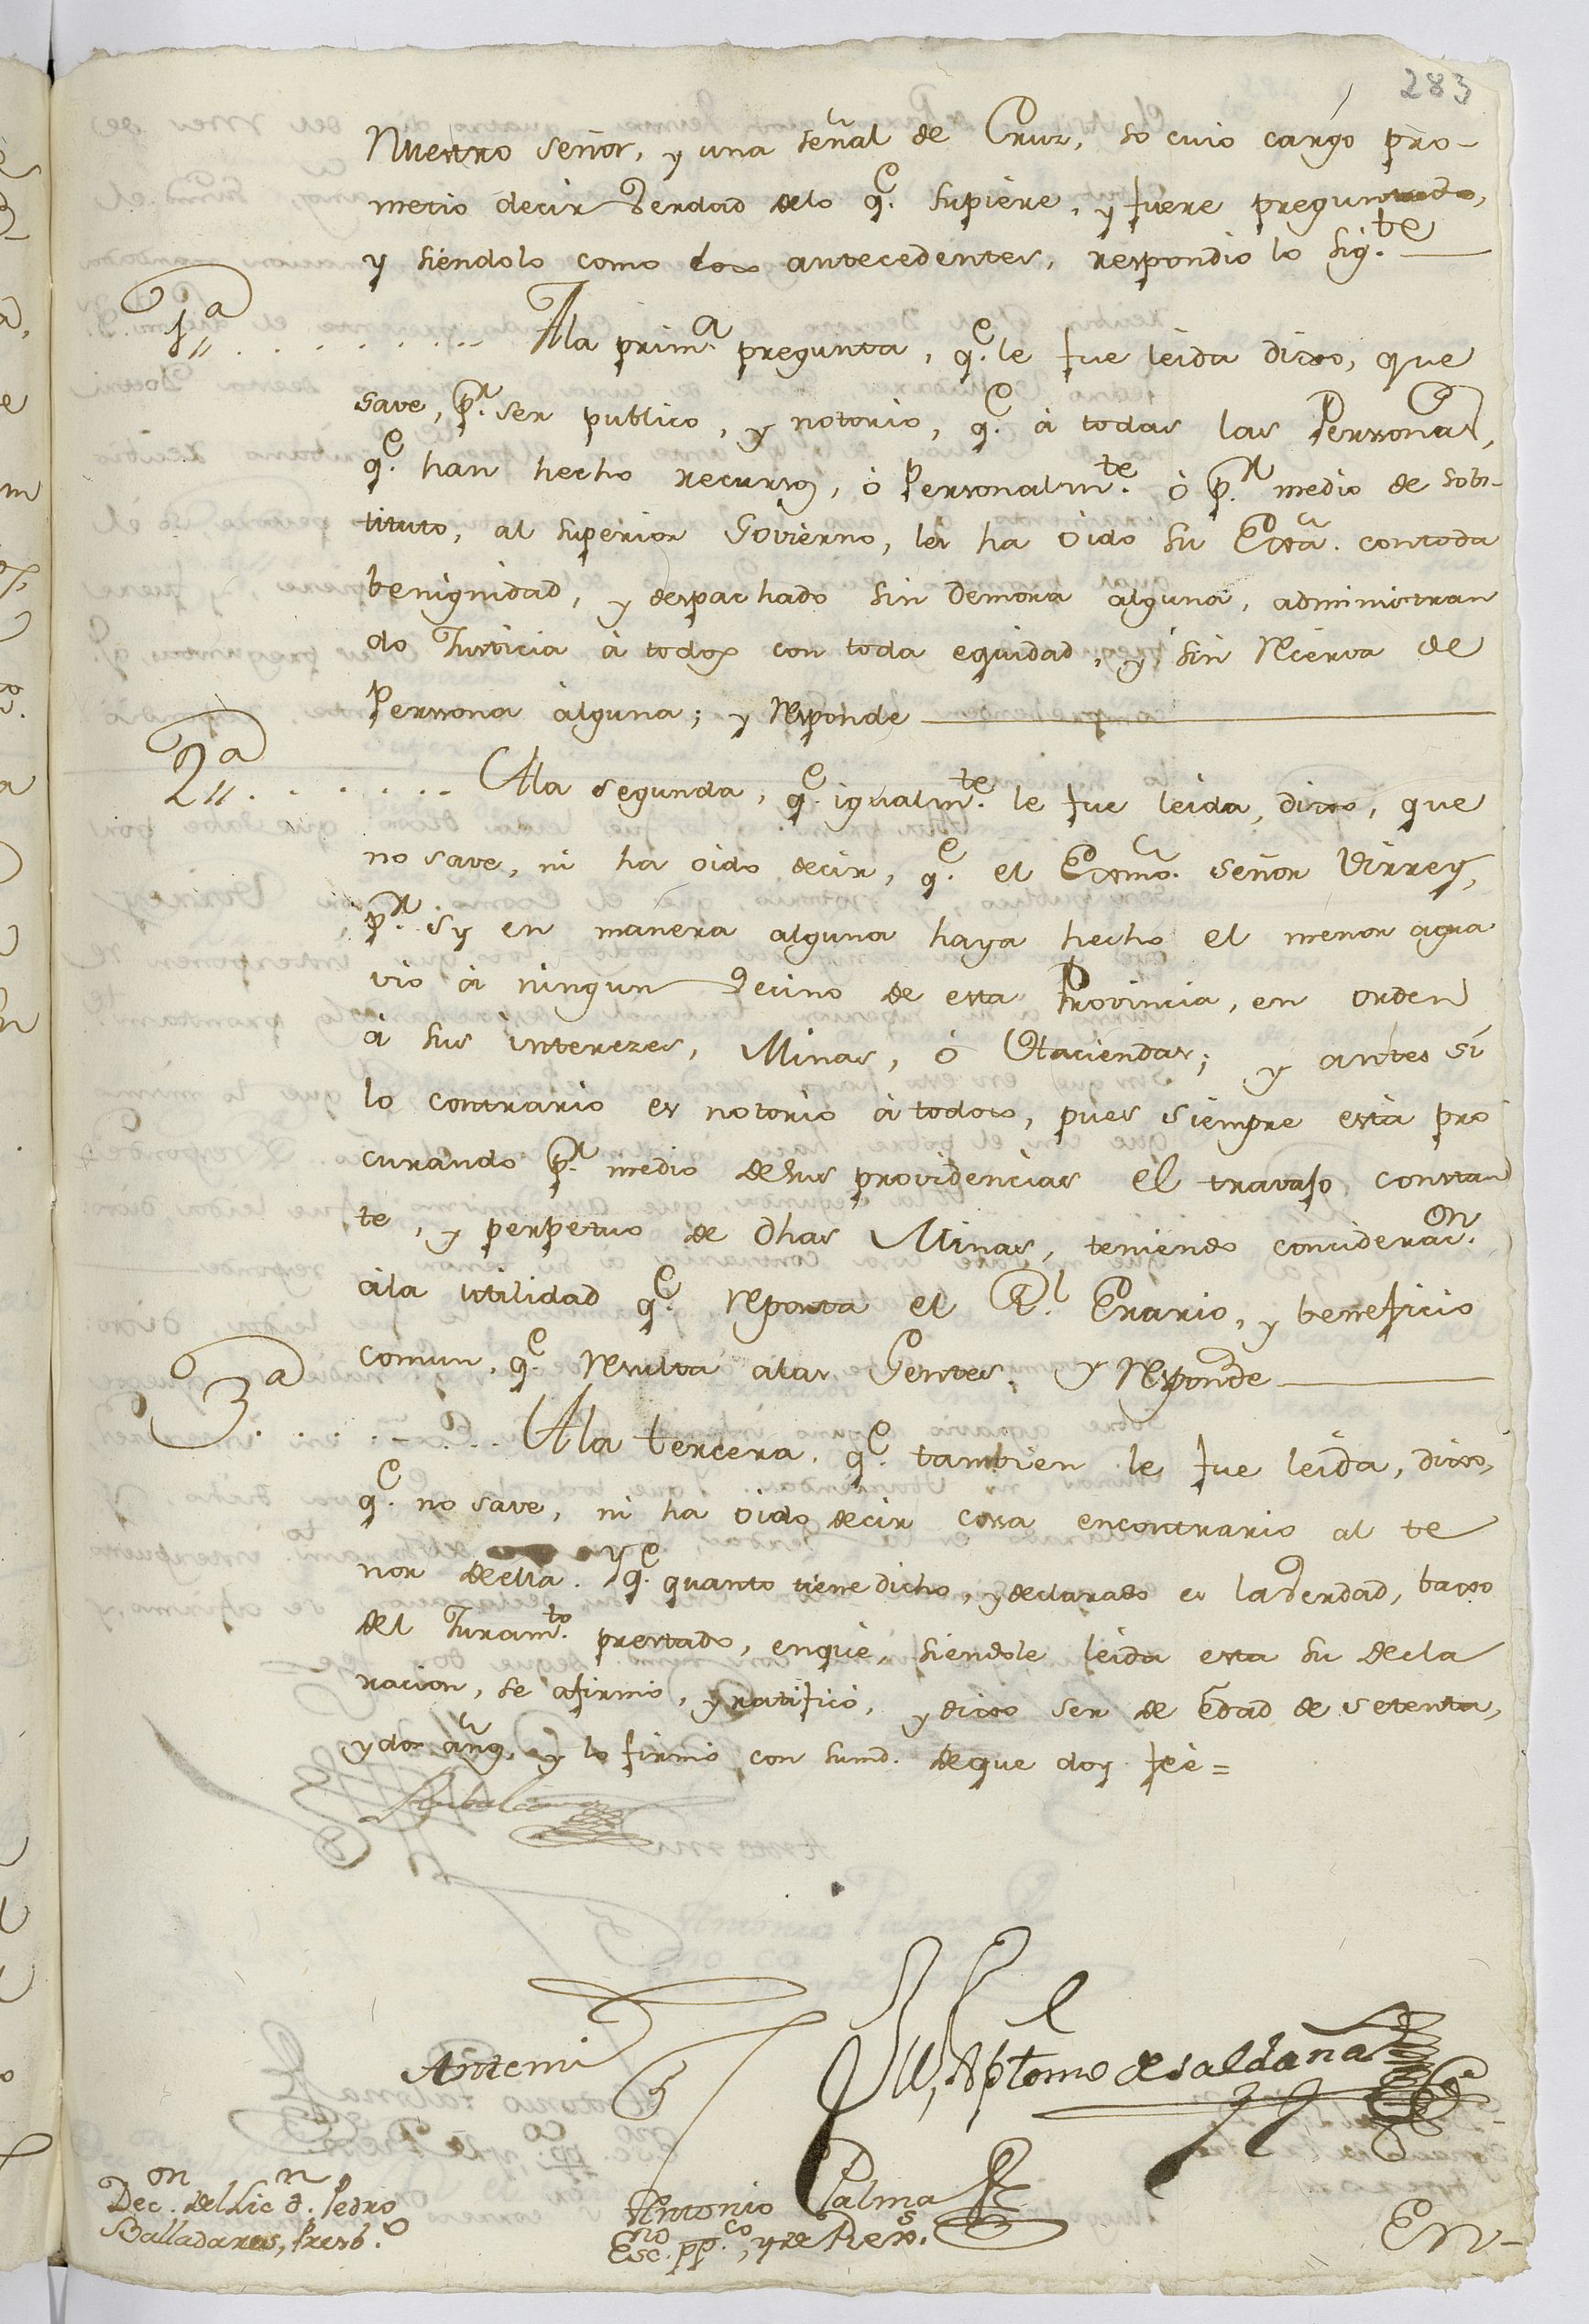 283
Nuestro señor, y una señal de Cruz, so cuio cargo pro-
metio decir Verdad delo q.e supiere, y fuere preguntado,
y siendolo como los antecedentes, respondio lo sig.te
1.a Ala prim.a pregunta, q.e le fue leida dixo, que
save, p.r ser publico, y notorio, q.e à todas las Perssonas,
q.e han hecho recursos, ò Personalm.te ò p.r medio de sobs-
tituto, al superior Govierno, les ha òido su Exa. contoda
benignidad, y despachado sin demora alguna, administran
do Justicia à todos con toda equidad, y sin recerva de
Perssona alguna; y responde
2.a Ala segunda, q.e igualm.te le fue leida, dixo, que
no save, ni ha oido decir, q.e el Exmo. señor Virrey,
p.r sy en manera alguna haya hecho el menor agra
vio à ningun Vecino de esta Provincia, en orden
à sus interezes, Minas, ò Haciendas; y antes sí
lo contrario es notorio à todos, pues siempre està pro
curando p.r medio desus providencias el travajo constan
te, y perpetuo de dhas Minas, teniendo considerac.on
àla utilidad q.e reporta el R.l Erario, y beneficio
comun, q.e resulta alas Gentes. Y responde
3.a Ala tercera, q.e tambien le fue leida, dixo,
q.e no save, ni ha oido decir cossa encontrario al te
nor deella. Y q.e quanto tiene dicho, y declarado es la Verdad, baxo
del Juram.to prestado, enque, siendole leida esta su decla
racion, se afirmò, y ratificò, y dixo ser de Edad de setenta,
y dos años, y lo firmò con sumd. deque doy feè=
Antemi
Bptome de saldaña
Antonio Palma
Esc.no pp.co, y de Rexs.
Dec.on del Lic.o d.n Pedro
Balladares, Presb.o
En-